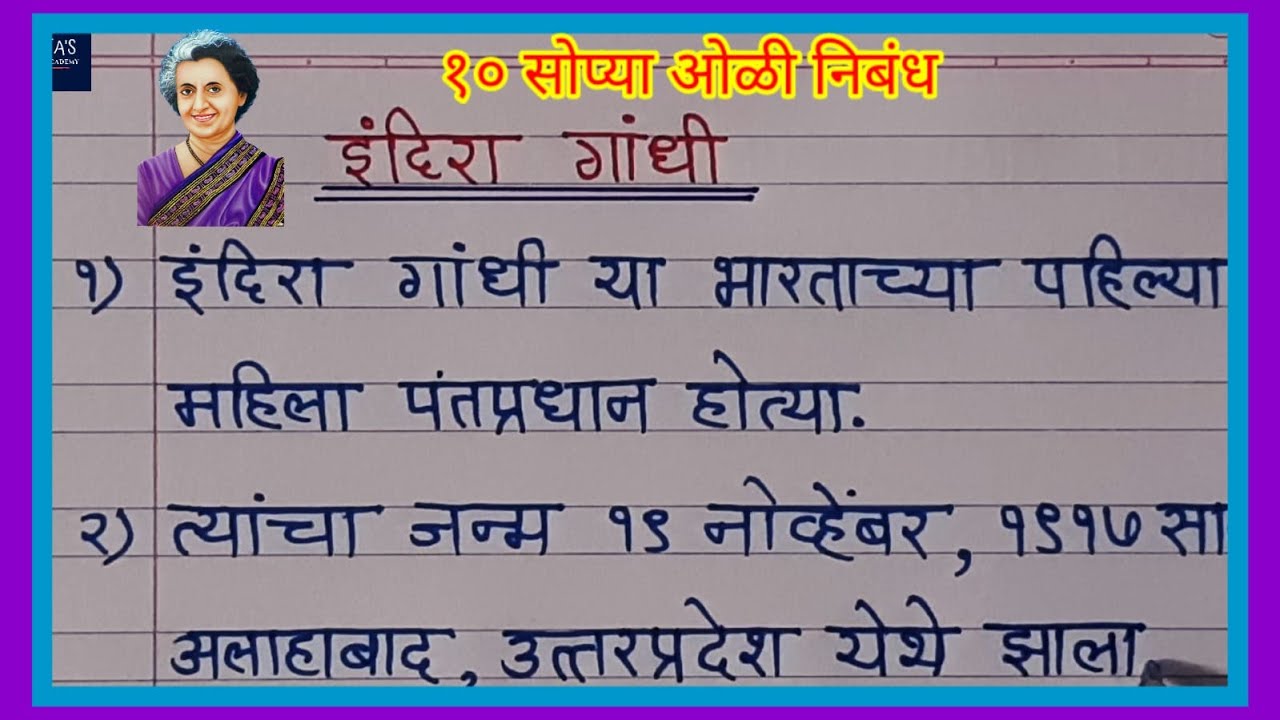 १० सोप्या ओळी निबंध
इंदिरा गांधी
१) इंदिरा गांधी या भारताच्या पहिल्या
महिला पंतप्रधान होत्या.
२) त्यांचा जन्म १९ नोव्हेंबर, १९१७ सा
अलाहाबाद, उत्तरप्रदेश येथे झाला